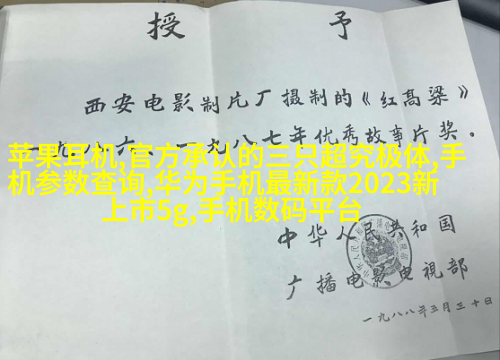 授 予
西安电影制片厂摄制的《红高粱》
一九八六、一九八七年优秀故事片奖。
苹果耳机,官方承认的三只超究极体,手
机参数查询,华为手机最新款2023新
上市5g,手机数码平台
中华人民共和国
广播电影电视部
一九八八年三月三十日